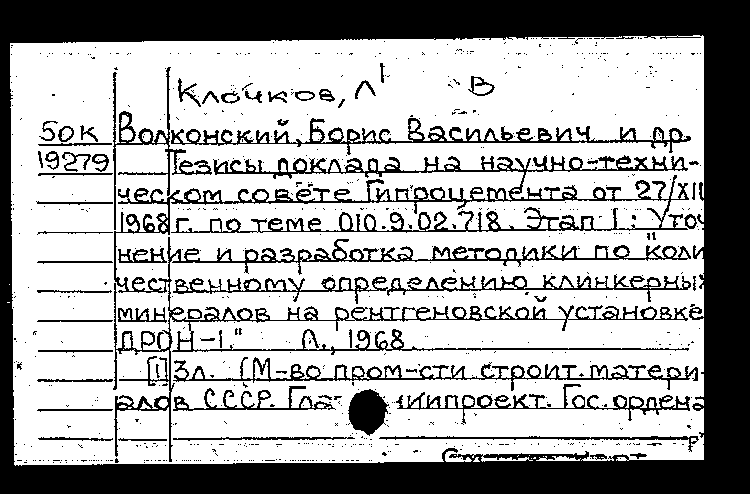 Клочков, Л В
50К Волконский, Борис Васильевич и др.
19279 Тезисы доклада на научно-техни-
ческом совете Гипроцемента от 27/XII
1968 г. по теме 010.9.02.718. Этап 1: Уточ
нение и разработка методики по "коли
чественному определению клинкерных
минералов на рентгеновской установке
ДРОН-1." Л., 1968.
[1] 3 л. (М-во пром-сти строит. матери-
алов СССР. Глав нИИпроект. Гос. ордена